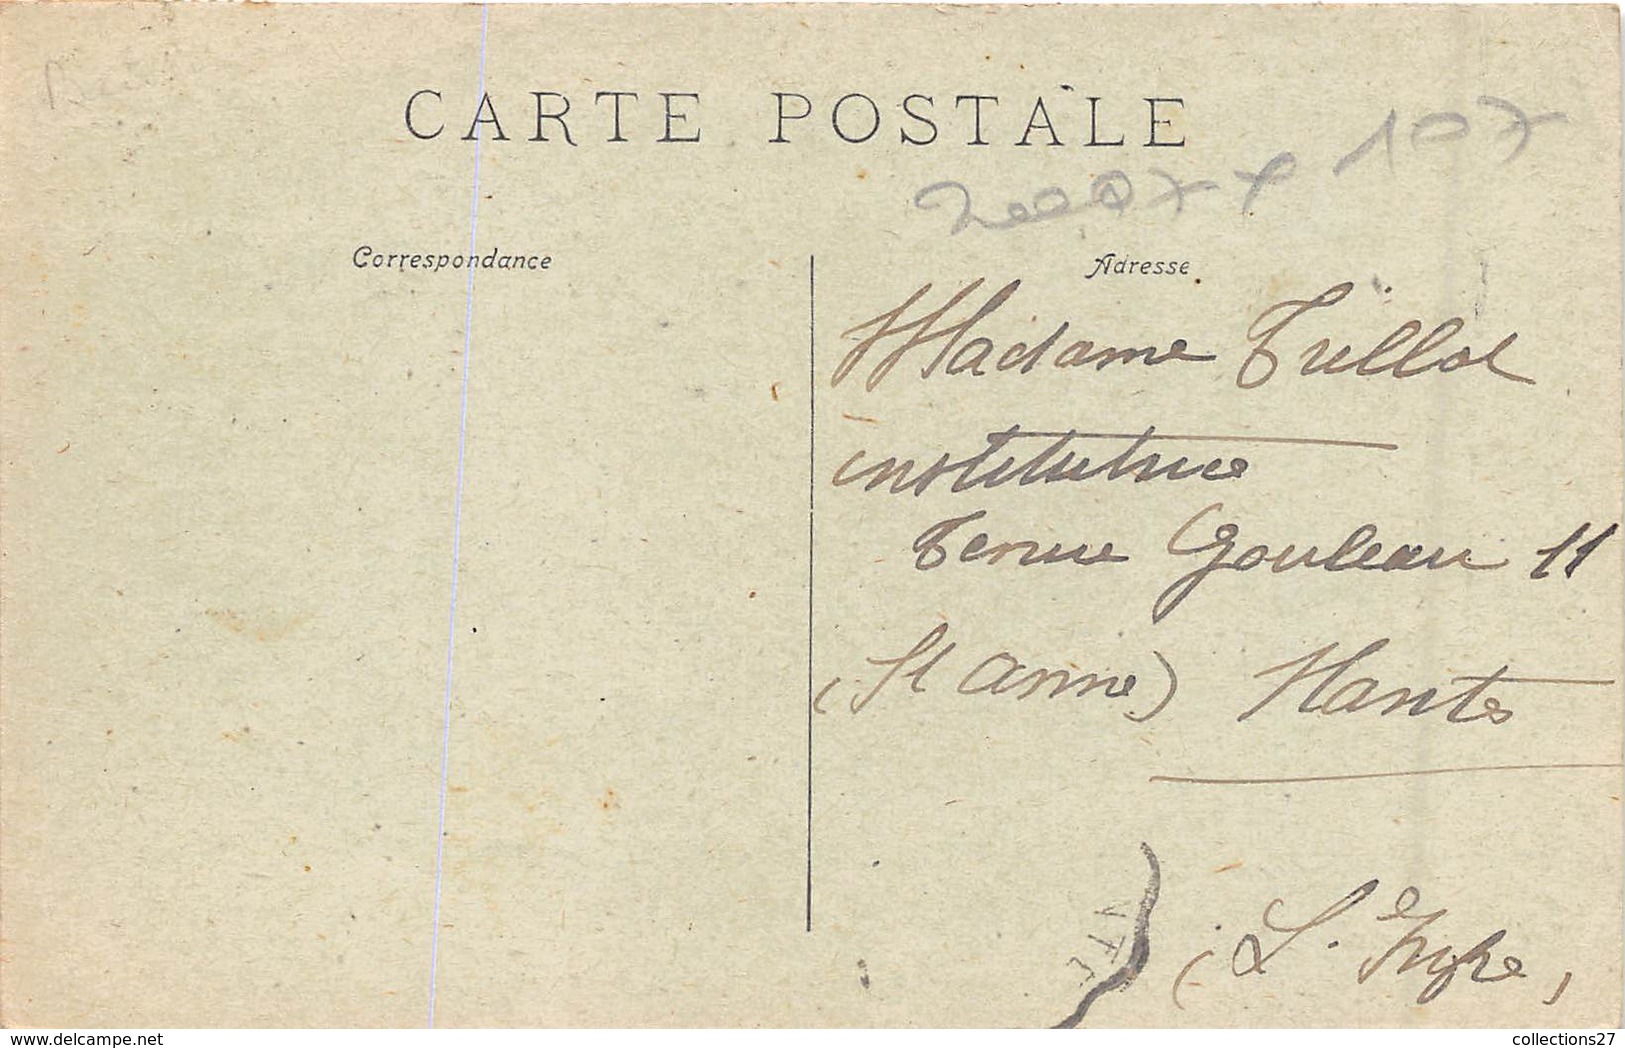 CARTE POSTALE
Correspondance
Adresse
Madame Trillot
institutrice
Tenue Gouleau 11
(St Anne) Nantes
(L. Infre)
www.delcampe.net
collections27